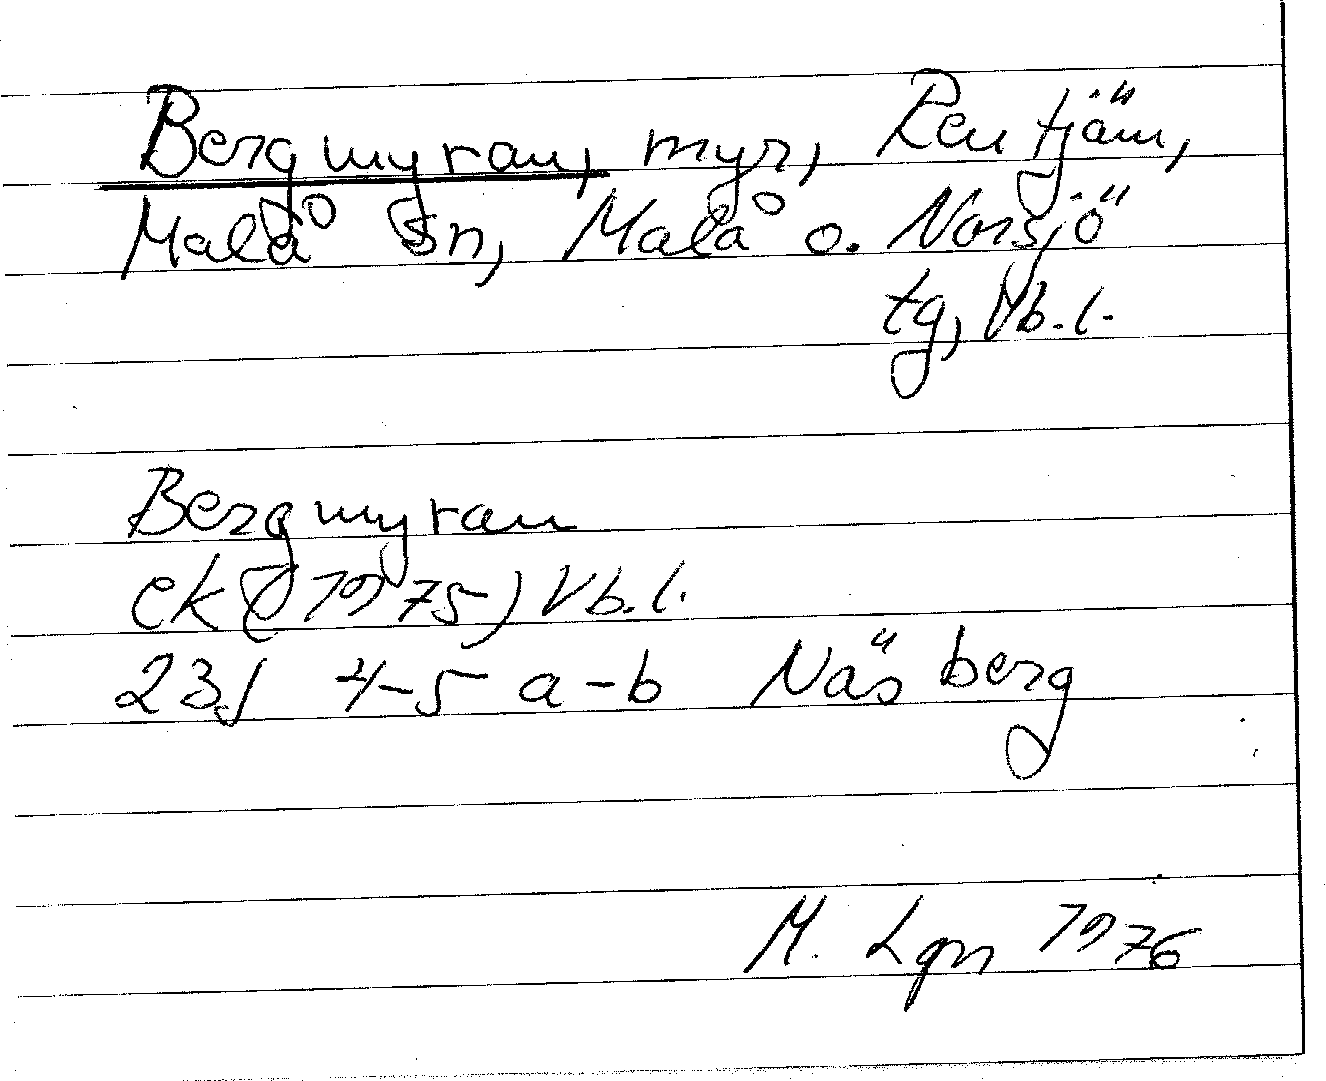 Bergmyran, myr, Rentjärn,
Malå sn, Malå o. Norsjö
tg, Vb.l.
Bergmyran
ek (1975) Vb.l.
23J 4-5 a-b Näsberg
M. Lgn 1976